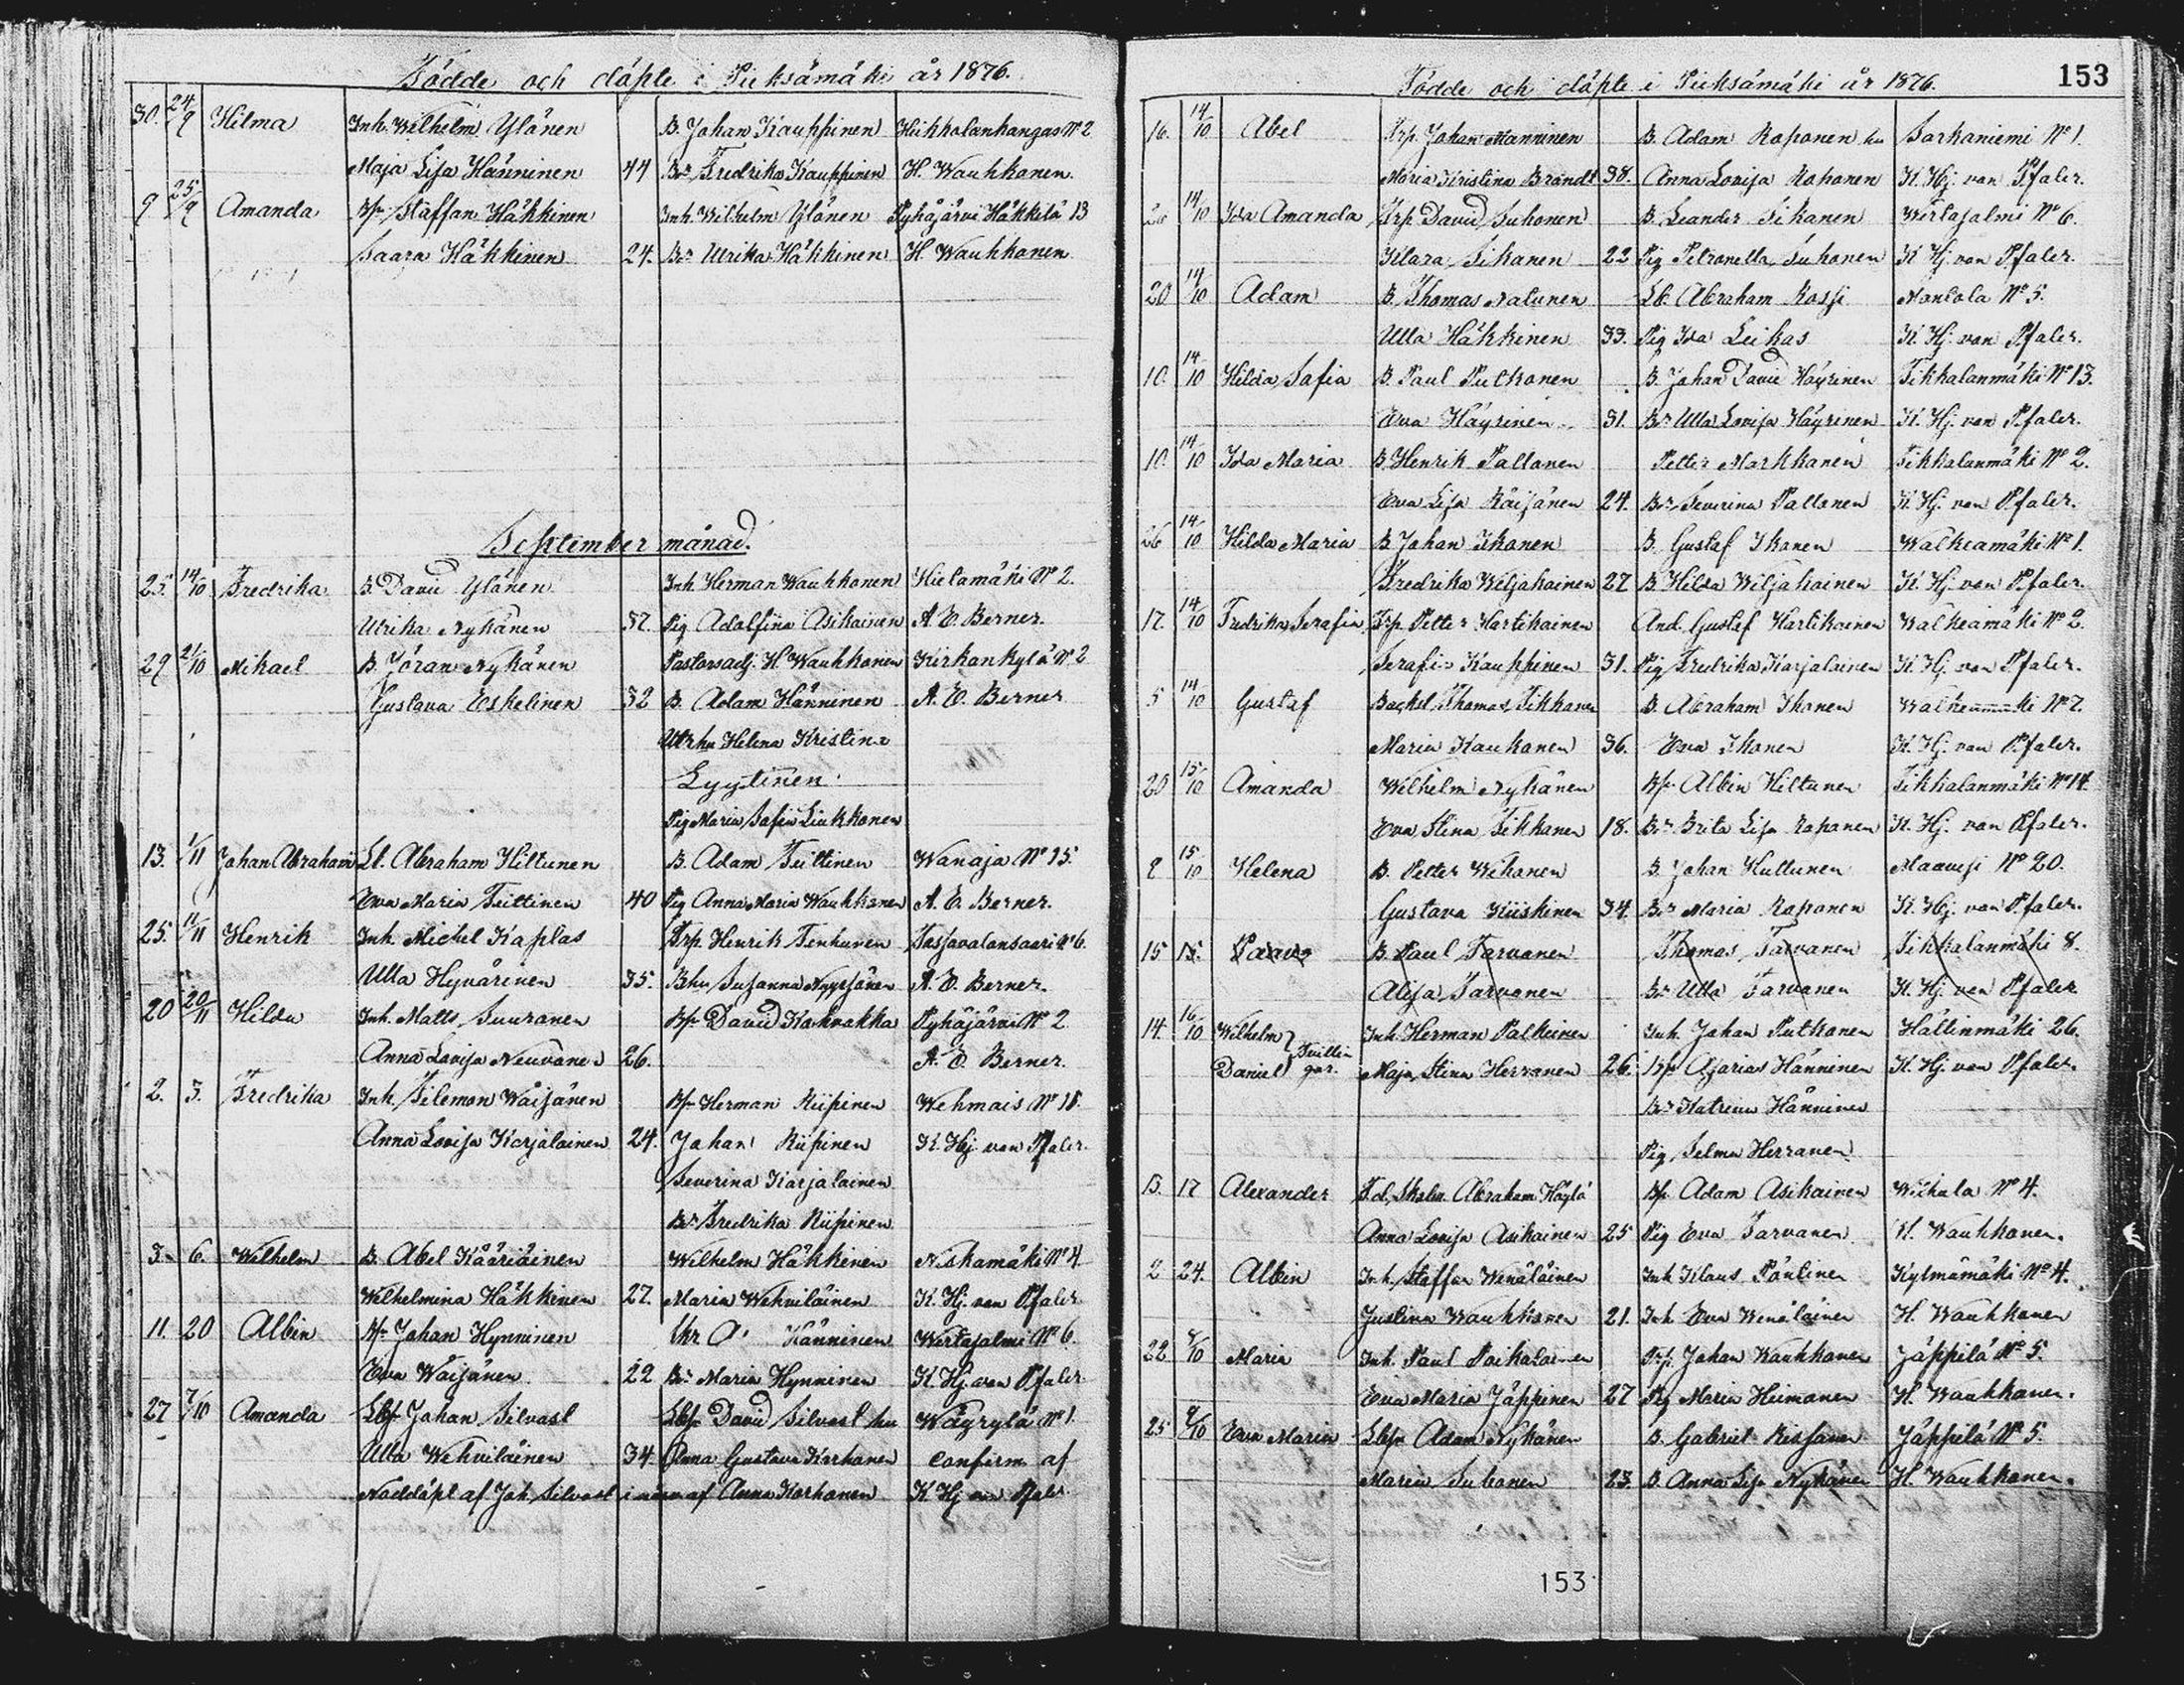 Födde och döpte i Pieksämäki år 1876.
30. 24/9 Hilma Inh. Wilhelm Ylönen B. Johan Kauppinen Hiikkolankangas No 2
Maja Lisa Hänninen 44 Br Fredrika Kauppinen H. Wauhkonen.
9 25/9 Amanda Bp Staffan Häkkinen Inh. Wilhelm Ylönen Pyhäjärvi Häkkilä 13
Saara Häkkinen 24. Br Ulrika Häkkinen H. Wauhkonen
September månad.
25. 14/10 Fredrika B. David Ylönen Inh. Herman Wauhkonen Hietamäki No 2.
Ulrika Nykänen 37. Pig Adolfina Asikainen A. E. Berner.
29 21/10 Mikael B. Jöran Nykänen Pastorsadj. H. Wauhkonen Kirkonkylä No 2
Gustava Eskelinen 32 B. Adam Hänninen A. E. Berner
Helena Kristina
Lyytinen
Pig Maria Sofia Liukkonen
13. 1/11 Johan Abraham Lt. Abraham Hiltunen B. Adam Teittinen Wanaja No 15.
Eva Maria Teittinen 40 Pig Anna Maria Wauhkonen A. E. Berner.
25. 11/11 Henrik Inh. Michel Kaplas Trp. Henrik Tenhunen No 6.
Ulla Hyvärinen 35. Bhu Susanna Nyyssönen A. E. Berner.
20 20/11 Hilda Inh. Matts Suuronen Bp David Kokvakka Pyhäjärvi No 2
Anna Lovisa Neuvonen 26. A. E. Berner.
2. 3. Fredrika Inh. Filemon Wäisänen Bp Herman Riipinen Wehmais No 18.
Anna Lovisa Karjalainen 24. Johan Riipinen K. Hj. von Pfaler.
Severina Karjalainen
Br Fredrika Riipinen
3. 6. Wilhelm B. Abel Kääriäinen Wilhelm Häkkinen Niskamäki No 4.
Wilhelmina Häkkinen 27. Maria Wehviläinen K. Hj. von Pfaler
11. 20 Albin Bp Johan Hynninen Hänninen Wertasalmi No 6.
Eva Wäisänen. 22 Br Maria Hynninen K. Hj. von Pfaler
27 7/10 Amanda Lbp Johan Silvast Lbp David Silvast hu Wäyrylä No 1.
Ulla Wehviläinen 34. Anna Gustava Korhonen Confirm. af
Nöddöpt af Joh. Silvast af Anna Korhonen K Hj von Pfaler
153
Födde och döpte i Pieksämäki år 1876.
16. 14/10 Abel Trp. Johan Manninen B. Adam Roponen hu Sarkaniemi No 1.
Maria Kristina Brandt 38. Anna Lovisa Roponen K. Hj. von Pfaler.
26 14/10 Ida Amanda Trp David Suhonen B. Leander Tikanen Wertasalmi No 6.
Klara Tikanen 22 Pig Petronella Suhonen K Hj. von Pfaler.
20 14/10 Adam B. Thomas Nalunen Lb. Abraham Rossi Nontola No 5.
Ulla Häkkinen 33. Pig Ida Leikas K. Hj. von Pfaler.
10. 14/10 Hilda Sofia B. Paul Putkonen B. Johan David Häyrinen Tikkalanmäki No 13.
Eva Häyrinen 31. Br Ulla Lovisa Häyrinen K. Hj. von Pfaler.
10. 14/10 Ida Maria B. Henrik Pallonen Petter Markkanen Tikkalanmäki No 2.
Eva Lisa Räisänen 24. Br Severina Pallonen K. Hj. von Pfaler.
26 14/10 Hilda Maria B. Johan Ikonen B. Gustaf Ikonen Walkeamäki No 1.
Fredrika Weljakainen 27 B. Hilda Weljakainen K. Hj. von Pfaler.
17. 14/10 Fredrika Serafia Trp. Petter Hartikainen And. Gustaf Hartikainen Walkeamäki No 2.
Serafia Kauppinen 31. Pig Fredrika Karjalainen K. Hj. von Pfaler.
5 14/10 Gustaf Thomas Tikkanen B. Abraham Ikonen Walkeamäki No 7.
Maria Kaukonen 36. Eva Ikonen K. Hj. von Pfaler.
20 15/10 Amanda Wilhelm Nykänen Bp Albin Hiltunen Tikkalanmäki No 14
Eva Stina Tikkanen 18. Br Brita Lisa Roponen K. Hj. von Pfaler.
2 15/10 Helena B. Petter Wihonen B. Johan Huttunen Maavesi No 20.
Gustava Kiiskinen 34. Br Maria Roponen K. Hj. von Pfaler.
15 15. Paavo B. Paul Tarvonen Thomas Tarvanen Tikkalanmäki 8.
Alisa Tarvonen Br Ulla Tarvanen K. Hj. von Pfaler
14. 16/10 Wilhelm Inh. Herman Palkeinen Inh. Johan Putkonen Hällinmäki 26.
Daniel Tvillingar. Maja Stina Herranen 26. Bp Asarias Hänninen K. Hj. von Pfaler.
Br Katrina Hänninen
Pig Selma Herranen
13. 17 Alexander Abraham Häylä Bp Adam Asikainen Wihula No 4.
Anna Lovisa Asikainen 25 Pig Eva Tarvanen H. Wauhkonen.
2 24. Albin Inh. Staffan Wenäläinen Inh Klaus Päntinen Kylmämäki No 4.
Justina Wauhkonen 21. Inh. Eva Wenäläinen H. Wauhkonen
22 8/10 Maria Inh. Paul Paikalainen Trp. Johan Wauhkonen Jäppilä No 5.
Eva Maria Jäppinen 27 Pig Maria Heimonen H. Wauhkonen.
25 9/10 Eva Maria Lbp Adam Nykänen B. Gabriel Rissanen Jäppilä No 5.
Maria Suhonen 23. B. Anna Lisa Nykänen H. Wauhkonen.
153